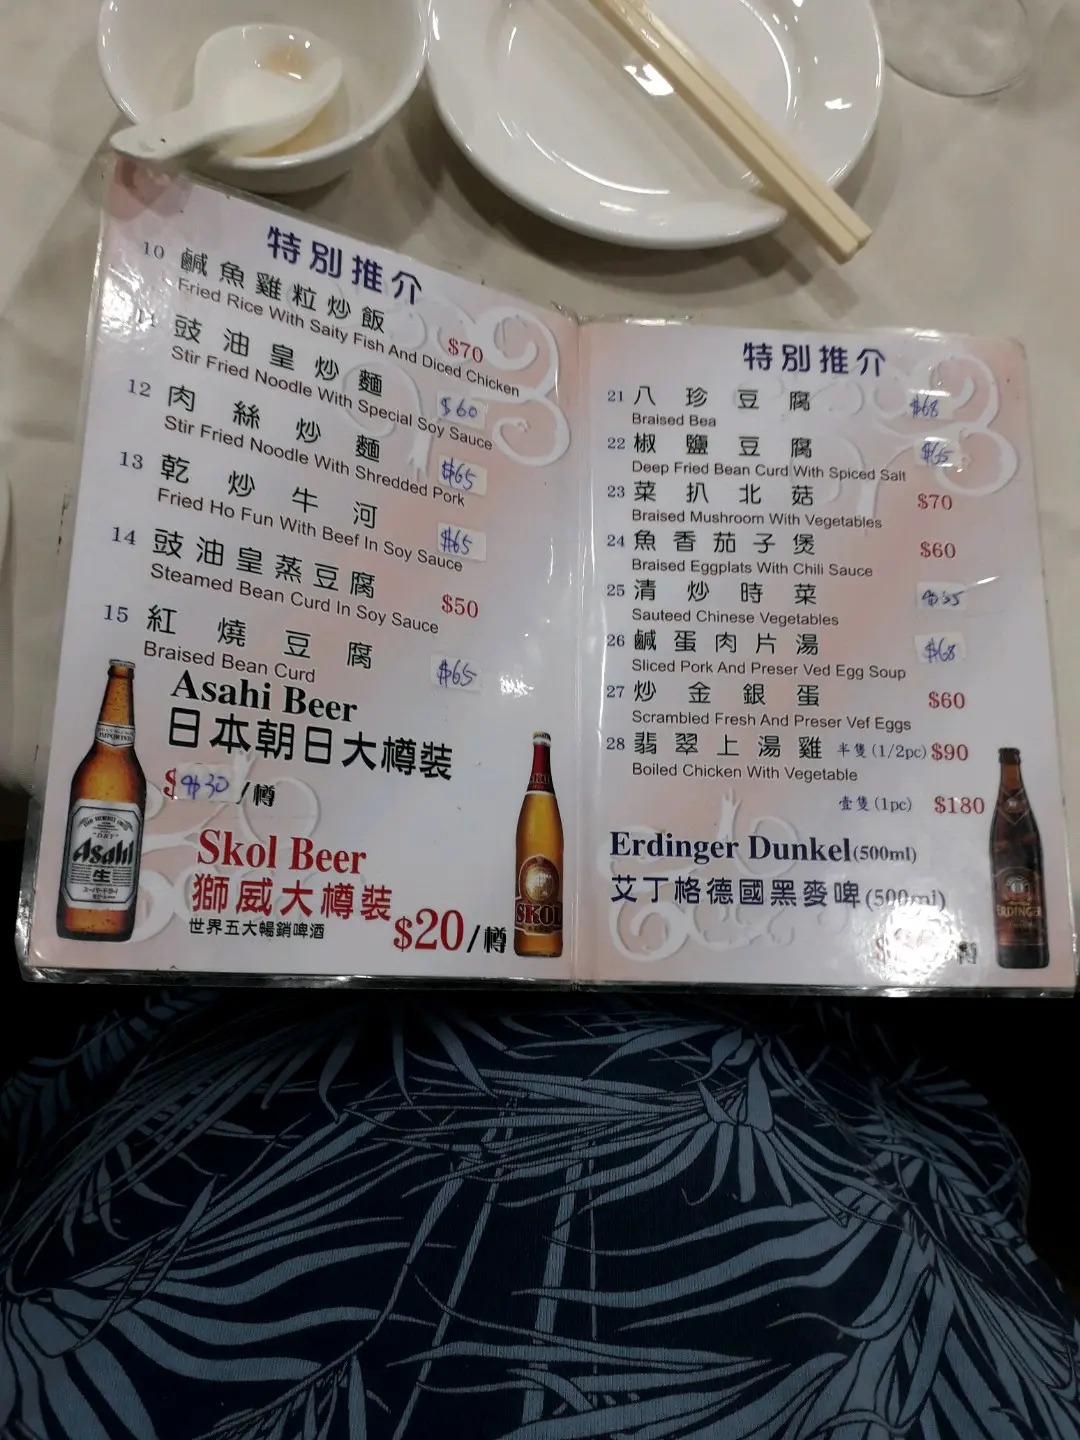 特別推介
10 鹹魚雞粒炒飯
Fried Rice With Salty Fish And Diced Chicken
$70
豉油皇炒麵
Stir Fried Noodle With Special Soy Sauce
$60
12 肉絲炒麵
Stir Fried Noodle With Shredded Pork
$65
13 乾炒牛河
Fried Ho Fun With Beef In Soy Sauce
$65
14 豉油皇蒸豆腐
Steamed Bean Curd In Soy Sauce
$50
15 紅燒豆腐
Braised Bean Curd
$65
Asahi Beer
日本朝日大樽裝
$30/樽
Asahi
生
Skol Beer
獅威大樽裝
世界五大暢銷啤酒
$20/樽
SKOL
特別推介
21 八珍豆腐 $68
Braised Bea
22 椒鹽豆腐
Deep Fried Bean Curd With Spiced Salt
23 菜扒北菇 $70
Braised Mushroom With Vegetables
24 魚香茄子煲 $60
Braised Eggplats With Chili Sauce
25 清炒時菜
Sauteed Chinese Vegetables
26 鹹蛋肉片湯 $68
Sliced Pork And Preser Ved Egg Soup
27 炒金銀蛋 $60
Scrambled Fresh And Preser Vef Eggs
28 翡翠上湯雞 半隻(1/2pc) $90
Boiled Chicken With Vegetable
壹隻(1pc) $180
Erdinger Dunkel(500ml)
艾丁格德國黑麥啤(500ml)
樽
ERDINGER